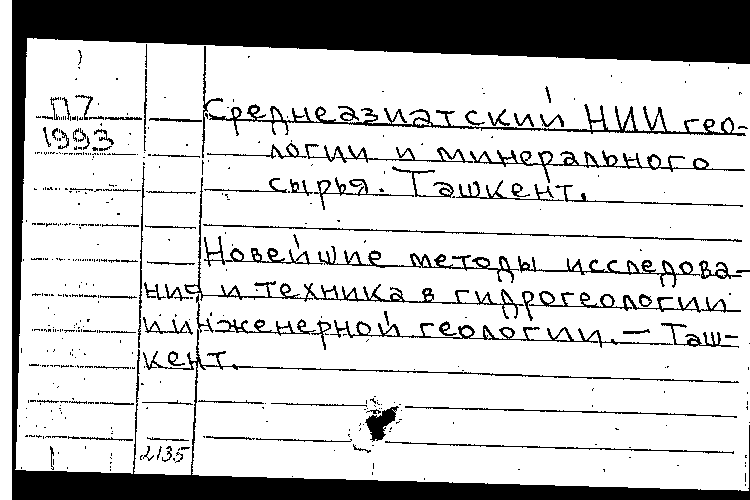 П7
1993
Среднеазиатский НИИ гео-
логии и минерального
сырья. Ташкент.
Новейшие методы исследова-
ния и техника в гидрогеологии
и инженерной геологии. — Таш-
кент.
2135